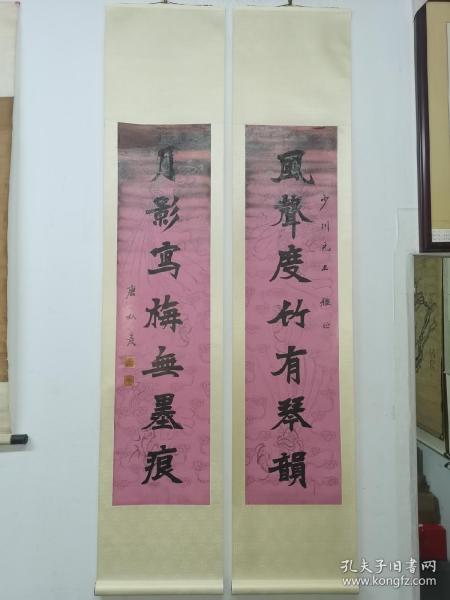 風聲度竹有琴韻
少川先生
月影寫梅無墨痕
孔夫子旧书网
www.kongfz.com